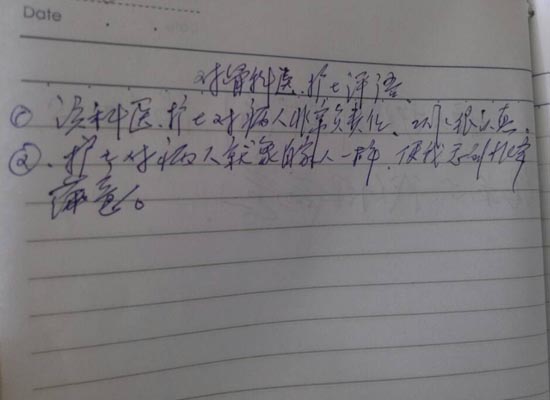 Date
对骨科医.护士评语.
① 该科医.护士对病人非常负责任、工作很认真.
②.护士对病人就象自家人一样.使我感到非常
满意。